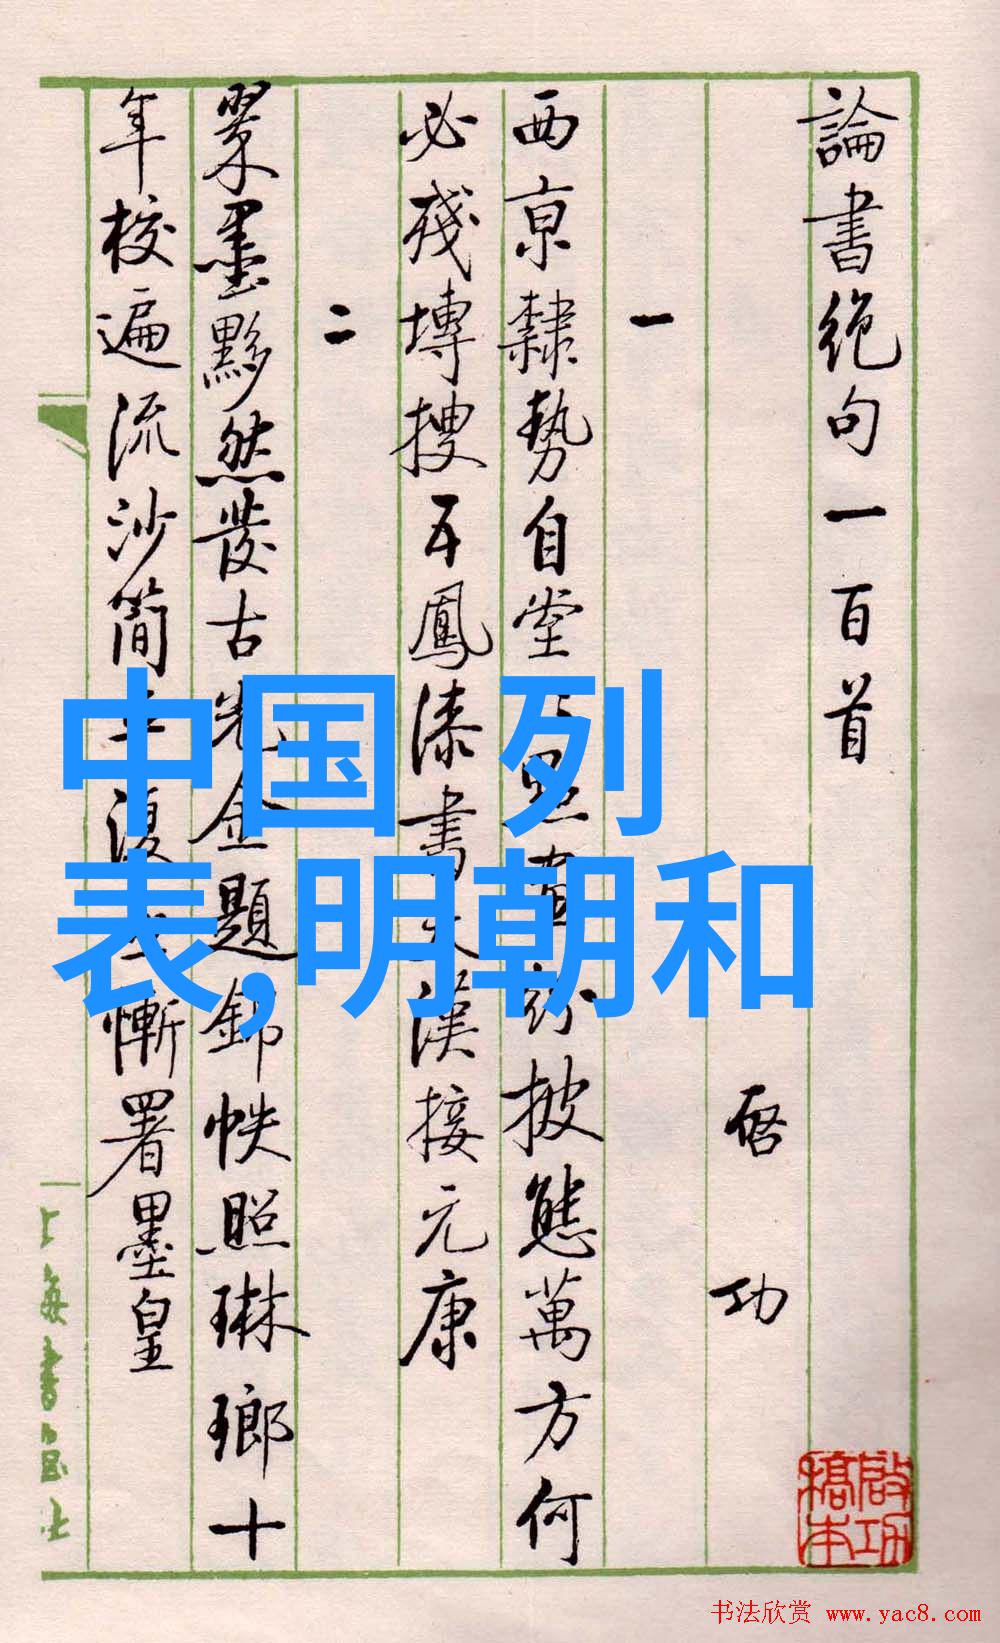 論書絶句一百首
启功
一
西京隸勢自堂點畫紛披態萬方何
必殘塼搜五鳳漆書天漢接元康
二
翠墨黟然發古光金題錦帙照琳瑯十
年校遍流沙簡平復無慚署墨皇
上海書画社
啟功
稿本
中国 列
表,明朝和
书法欣赏 www.yac8.com